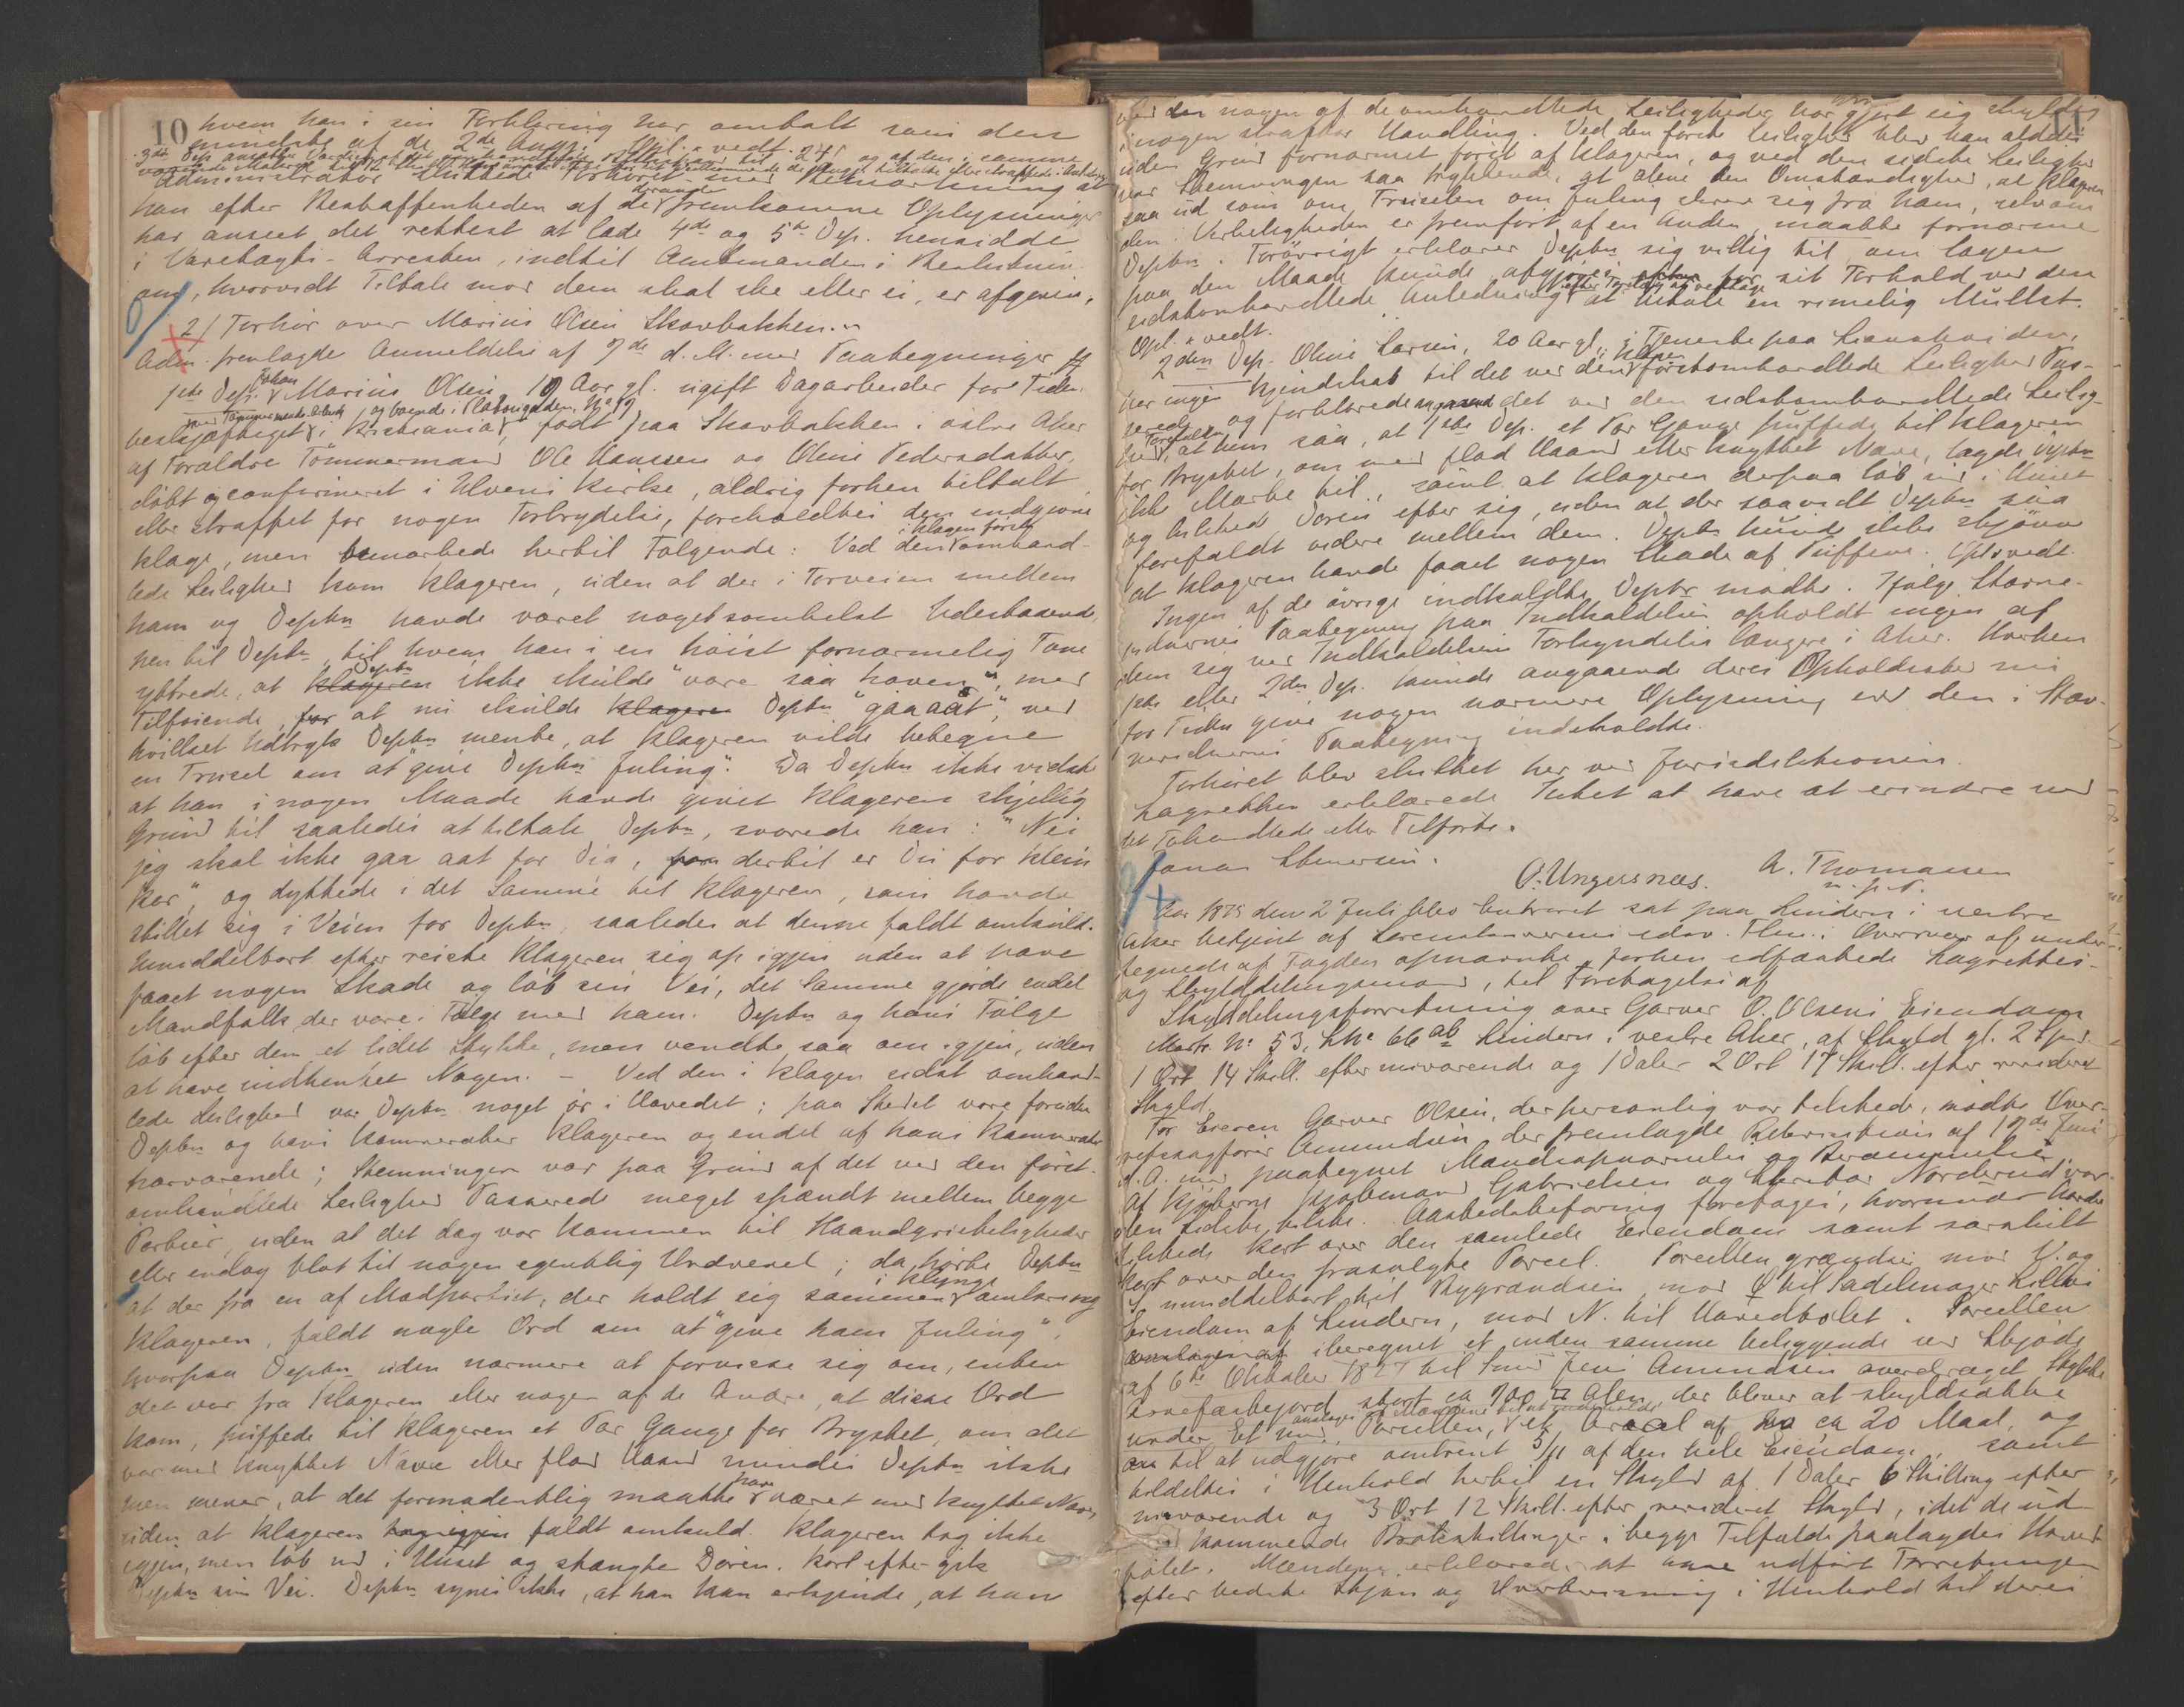 10 hvem han i sin Forklaring har omtalt som den
mindste af de 2de Andre. Opl. & vedt.
Administrator sluttede Forhøret med Bemærkning at
han efter Beskaffenheden af de fremkomne Oplysninger
har anseet det rettest at lade 4de og 5te Dep. hensidde
i Varetægts-Arresten, indtil Amtmandens Beslutning
om, hvorvidt Tiltale mod dem skal ske eller ei, er afgiven.
2/ Forhør over Marius Olsen Skovbakken.
Adm. fremlagde Anmeldelse af 7de d. M. med Paategninger
1ste Dep. Johan Marius Olsen 19 Aar gl. ugift Dagarbeider for Tiden
beskjæftiget i Kristiania og boende i født paa Skovbakken i østre Aker
af Forældre Tømmermand Ole Hansen og Oline Pedersdatter,
døbt og confirmeret i Ulvens Kirke, aldrig forhen tiltalt
eller straffet for nogen Forbrydelse, foreholdtes den indgivne
Klage, men bemærkede hertil Følgende: Ved den i Klagen først omhand-
lede Leilighed kom Klageren, uden at der i Forveien mellem
ham og Deptn havde været nogetsomhelst Udestaaende,
hen til Deptn, til hvem han i en høist fornærmelig Tone
yttrede, at Klageren Deptn ikke skulde "være saa hoven", med
Tilføiende, for at nu skulde Klageren Deptn "gaa aat", ved
hvilket Udtryk Deptn mente, at Klageren vilde betegne
en Trusel om at "give Deptn Juling". Da Deptn ikke vidste
at han i nogen Maade havde givet Klageren skjellig
Grund til saaledes at tiltale Deptn, svarede han: "Nei
jeg skal ikke gaa aat for Dia, dertil er Du for klein
Kar", og dyttede i det Samme til Klageren, som havde
stillet sig i Veien for Deptn, saaledes at denne faldt omkuld.
Umiddelbart efter reiste Klageren sig op igjen uden at have
faaet nogen Skade og løb sin Vei, det Samme gjorde endel
Mandfolk, der vare i Følge med ham. Deptn og hans Følge
løb efter dem et lidet Stykke, men vendte saa om igjen, uden
at have indhentet Nogen. – Ved den i Klagen sidst omhand-
lede Leilighed var Deptn noget ør i Hovedet; paa Stedet vare foruden
Deptn og hans Kammerater Klageren og endel af hans Kammerater
nærværende; Stemningen var paa Grund af det ved den først-
omhandlede Leilighed Passerede meget spændt mellem begge
Partier, uden at det dog var kommen til Haandgribeligheder
eller endog blot til nogen egentlig Ordvexel; da hørte Deptn
at der fra en af Modpartiet, der holdt sig sammen i Klynge omkring
Klageren, faldt nogle Ord om at "give ham Juling",
hvorpaa Deptn uden nærmere at forvisse sig om, enten
det var fra Klageren eller nogen af de Andre, at disse Ord
kom, puffede til Klageren et Par Gange for Brystet, om det
var med knyttet Næve eller flad Haand mindes Deptn ikke
men mener, at det formodentlig maatte have været med knyttet Næve,
uden at Klageren faldt omkuld. Klageren tog ikke
igjen, men løb ind i Huset og stængte Døren. Kort efter gik
Deptn sin Vei. Deptn synes ikke, at han kan erkjende, at han
ved den nogen af de omhandlede Leiligheder har gjort sig skyldig
i nogen strafbar Handling. Ved den første Leilighed blev han aldeles
uden Grund fornærmet først af Klageren, og ved den sidste Leilighed
var Stemningen saa trykkende, at alene den Omstændighed, at Klageren
saa ud som om Truselen om Juling skrev sig fra ham, selvom
den i Virkeligheden er fremført af en Anden, maatte fornærme
Deptn. Forøvrigt erklærer Deptn sig villig til om Sagen
paa den Maade kunde afgjøres, for sit Forhold ved den
sidstomhandlede Anledning at udtale en rimelig Mulkt.
Opl. & vedt.
2den Dep. Oline Larsen, 20 Aar gl., i Tjeneste paa
har ingen Kjendskab til det ved den i Klagen førstomhandlede Leilighed Pas-
serede, og forklarede angaaende det ved den sidstomhandlede Leilig-
hed Forefaldne, at hun saa, at 1ste Dep. et Par Gange puffede til Klageren
for Brystet, om med flad Haand eller knyttet Næve, lagde Deptn
ikke Mærke til, samt at Klageren derpaa løb ind i Huset
og lukkede Døren efter sig, uden at der saavidt Deptn saa
forefaldt videre mellem dem. Deptn kunde ikke skjønne
at Klageren havde faaet nogen Skade af Puffene. Opl. & vedt.
Ingen af de øvrige indkaldte Deptr mødte. Ifølge Stævne-
vidnernes Paategning paa Indkaldelsen opholdt ingen af
dem sig ved Indkaldelsens Forkyndelse længere i Aker. Hverken
1ste eller 2den Dep. kunde angaaende deres Opholdssted nu
for Tiden give nogen nærmere Oplysning end den i Stæv-
nevidnernes Paategning indeholdte.
Forhøret blev sluttet her ved Jurisdiktionen.
Lagretten erklærede Intet at have at erindre ved
det Tohandlede eller Tilførte.
Jonas Stenersen.
O. Ungersnæs. A. Thomassen
m. p. P.
Aar 1875 den 2 Juli blev Extraret sat paa Lindern i vestre
Aker betjent af Sorenskriverens edsv. Flm. i Overvær af under-
tegnede af Fogden opnævnte, forhen edfæstede Lagrettes-
og Skylddelingsmænd, til Foretagelse af
Skylddelingsforretning over Garver O. Olsens Eiendom
Matr. No 53, LNo 66 ab Lindern i vestre Aker, af Skyld gl. 2
1 Ort 14 Skill. efter nuværende og 1 Daler 2 Ort 17 Skill. efter revideret
Skyld.
For Eieren Garver Olsen, der personlig var tilstede, mødte Over-
retssagfører Amundsen, der fremlagde Rekvisition af 19de Juni
d. A. med paategnet Mandsopnævnelse og Berammelse.
Af Kjøberne Kjøbmand Gabrielsen og Nordrud var
den sidste tilstede. Aastedsbefaring foretoges, hvorunder havdes
tilstede Kort over den samlede Eiendom samt særskilt
Kort over den frasolgte Parcel. Parcellen grændser mod V. og
S. umiddelbart til Bygrændsen, mod Ø til Sadelmager
Eiendom af Lindern, mod N. til Hovedbølet. Parcellen
iberegnet et inden samme beliggende ved Skjøde
af 6te Oktober 1827 til Amundsen overdraget Stykke
Arvefæstejord, stort ca 700 □ Alen, der bliver at skyldsætte
under Et med Parcellen, et Areal af ca 20 Maal, og
til at udgjøre omtrent 3/11 af den hele Eiendom, samt
tildeltes i Henhold hertil en Skyld af 1 Daler 6 Skilling efter
nuværende og 3 Ort 12 Skill. efter revideret Skyld, idet de ud-
kommende Brøkskillinger i begge Tilfælde paalagdes Hoved-
bølet. Mændene erklærede at have udført Forretningen
efter bedste Skjøn og Overbevisning i Henhold til deres